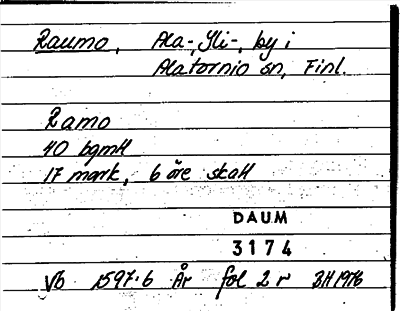 Raumo, Ala-, Yli-, by i
Alatornio sn, Finl.
Ramo
40 bgmtl
17 mark, 6 öre skatt
DAUM
3174
Vb 1597:6 År fol 2 r BH 1976